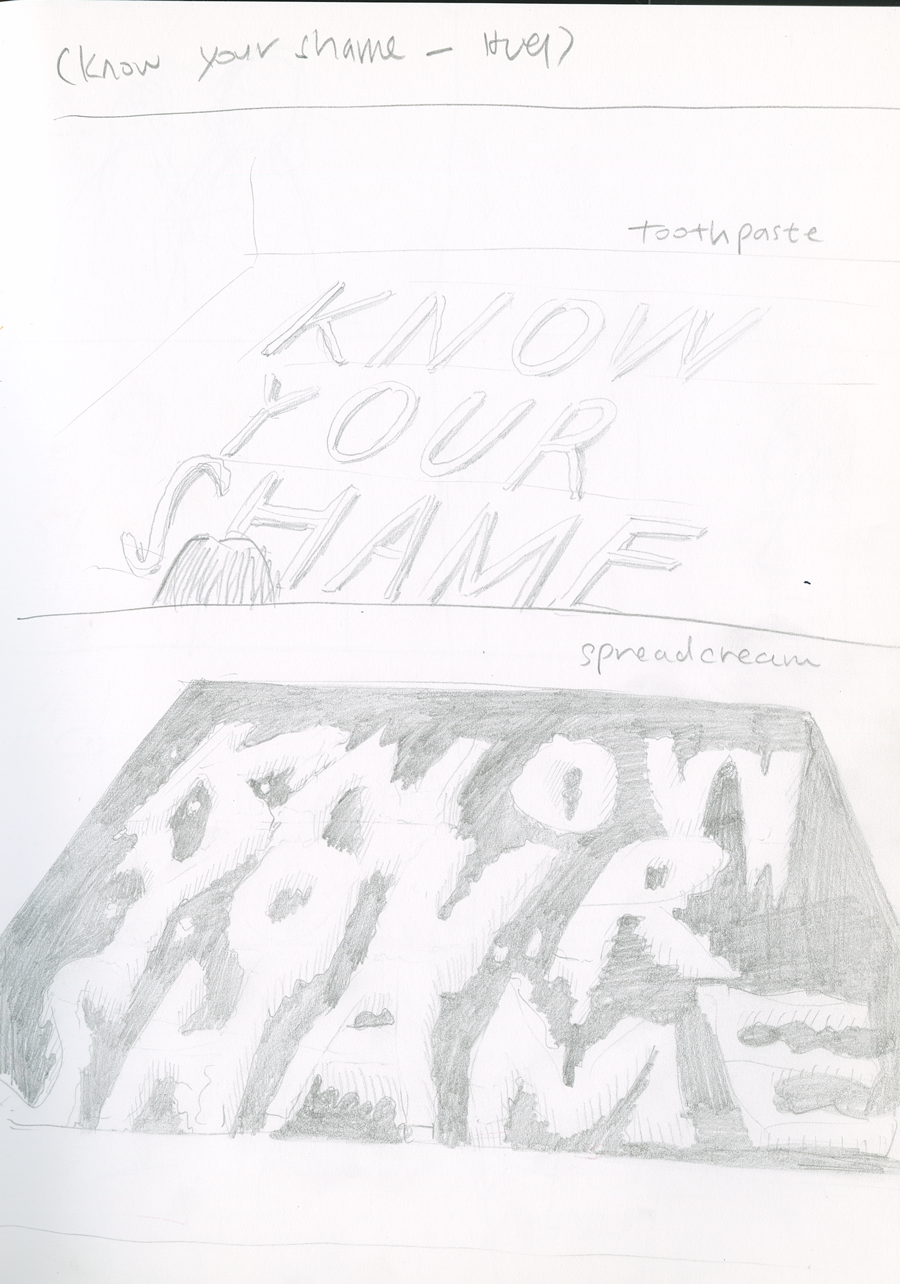 (know your shame –
toothpaste
KNOW
YOUR
SHAME
spreadcream
KNOW
YOUR
SHAME